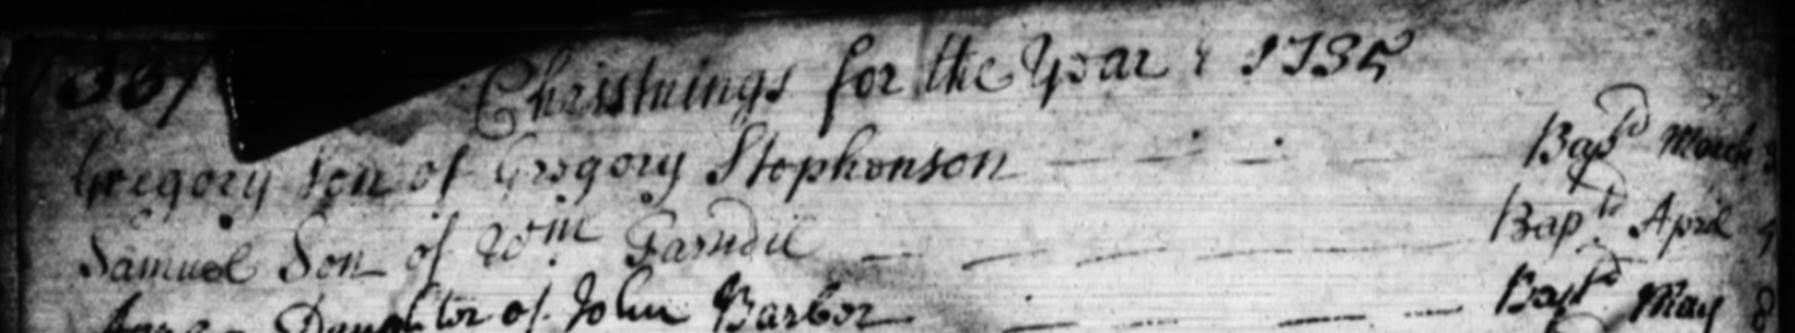 Christnings for the Year : 1735
Gregory Son of Gregory Stephenson Bapd March
Samuel Son of Wm Farndil Baptd April 9
Anne Daughter of John Barber Baptd May 8